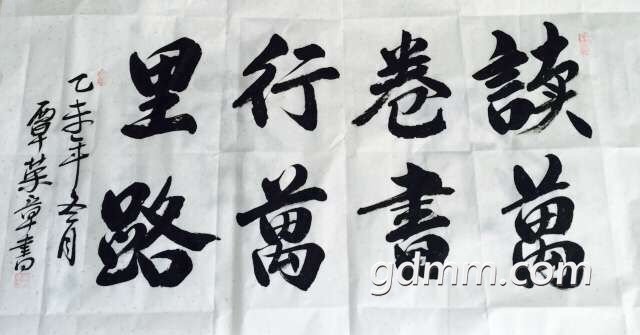 讀萬
卷書
行萬
里路
乙未年冬月
覃荣章書
gdmm.com